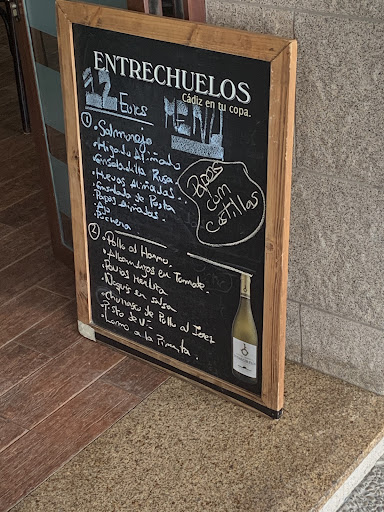 ENTRECHUELOS
Cádiz en tu copa.
12 Euros
MENU
1
· Salmorejo
· Higado Aliñado
· Ensaladilla Rusa
· Huevos Aliñados
· Ensalada de Pasta
· Papas Aliñadas
· Ajo
Papas
com
Costillas
2
· Pollo al Horno
· Albondigas en Tomate
· Pavias Merluza
· en salsa
· Churrasco de Pollo al Jerez
· Lomo a la Pimienta.